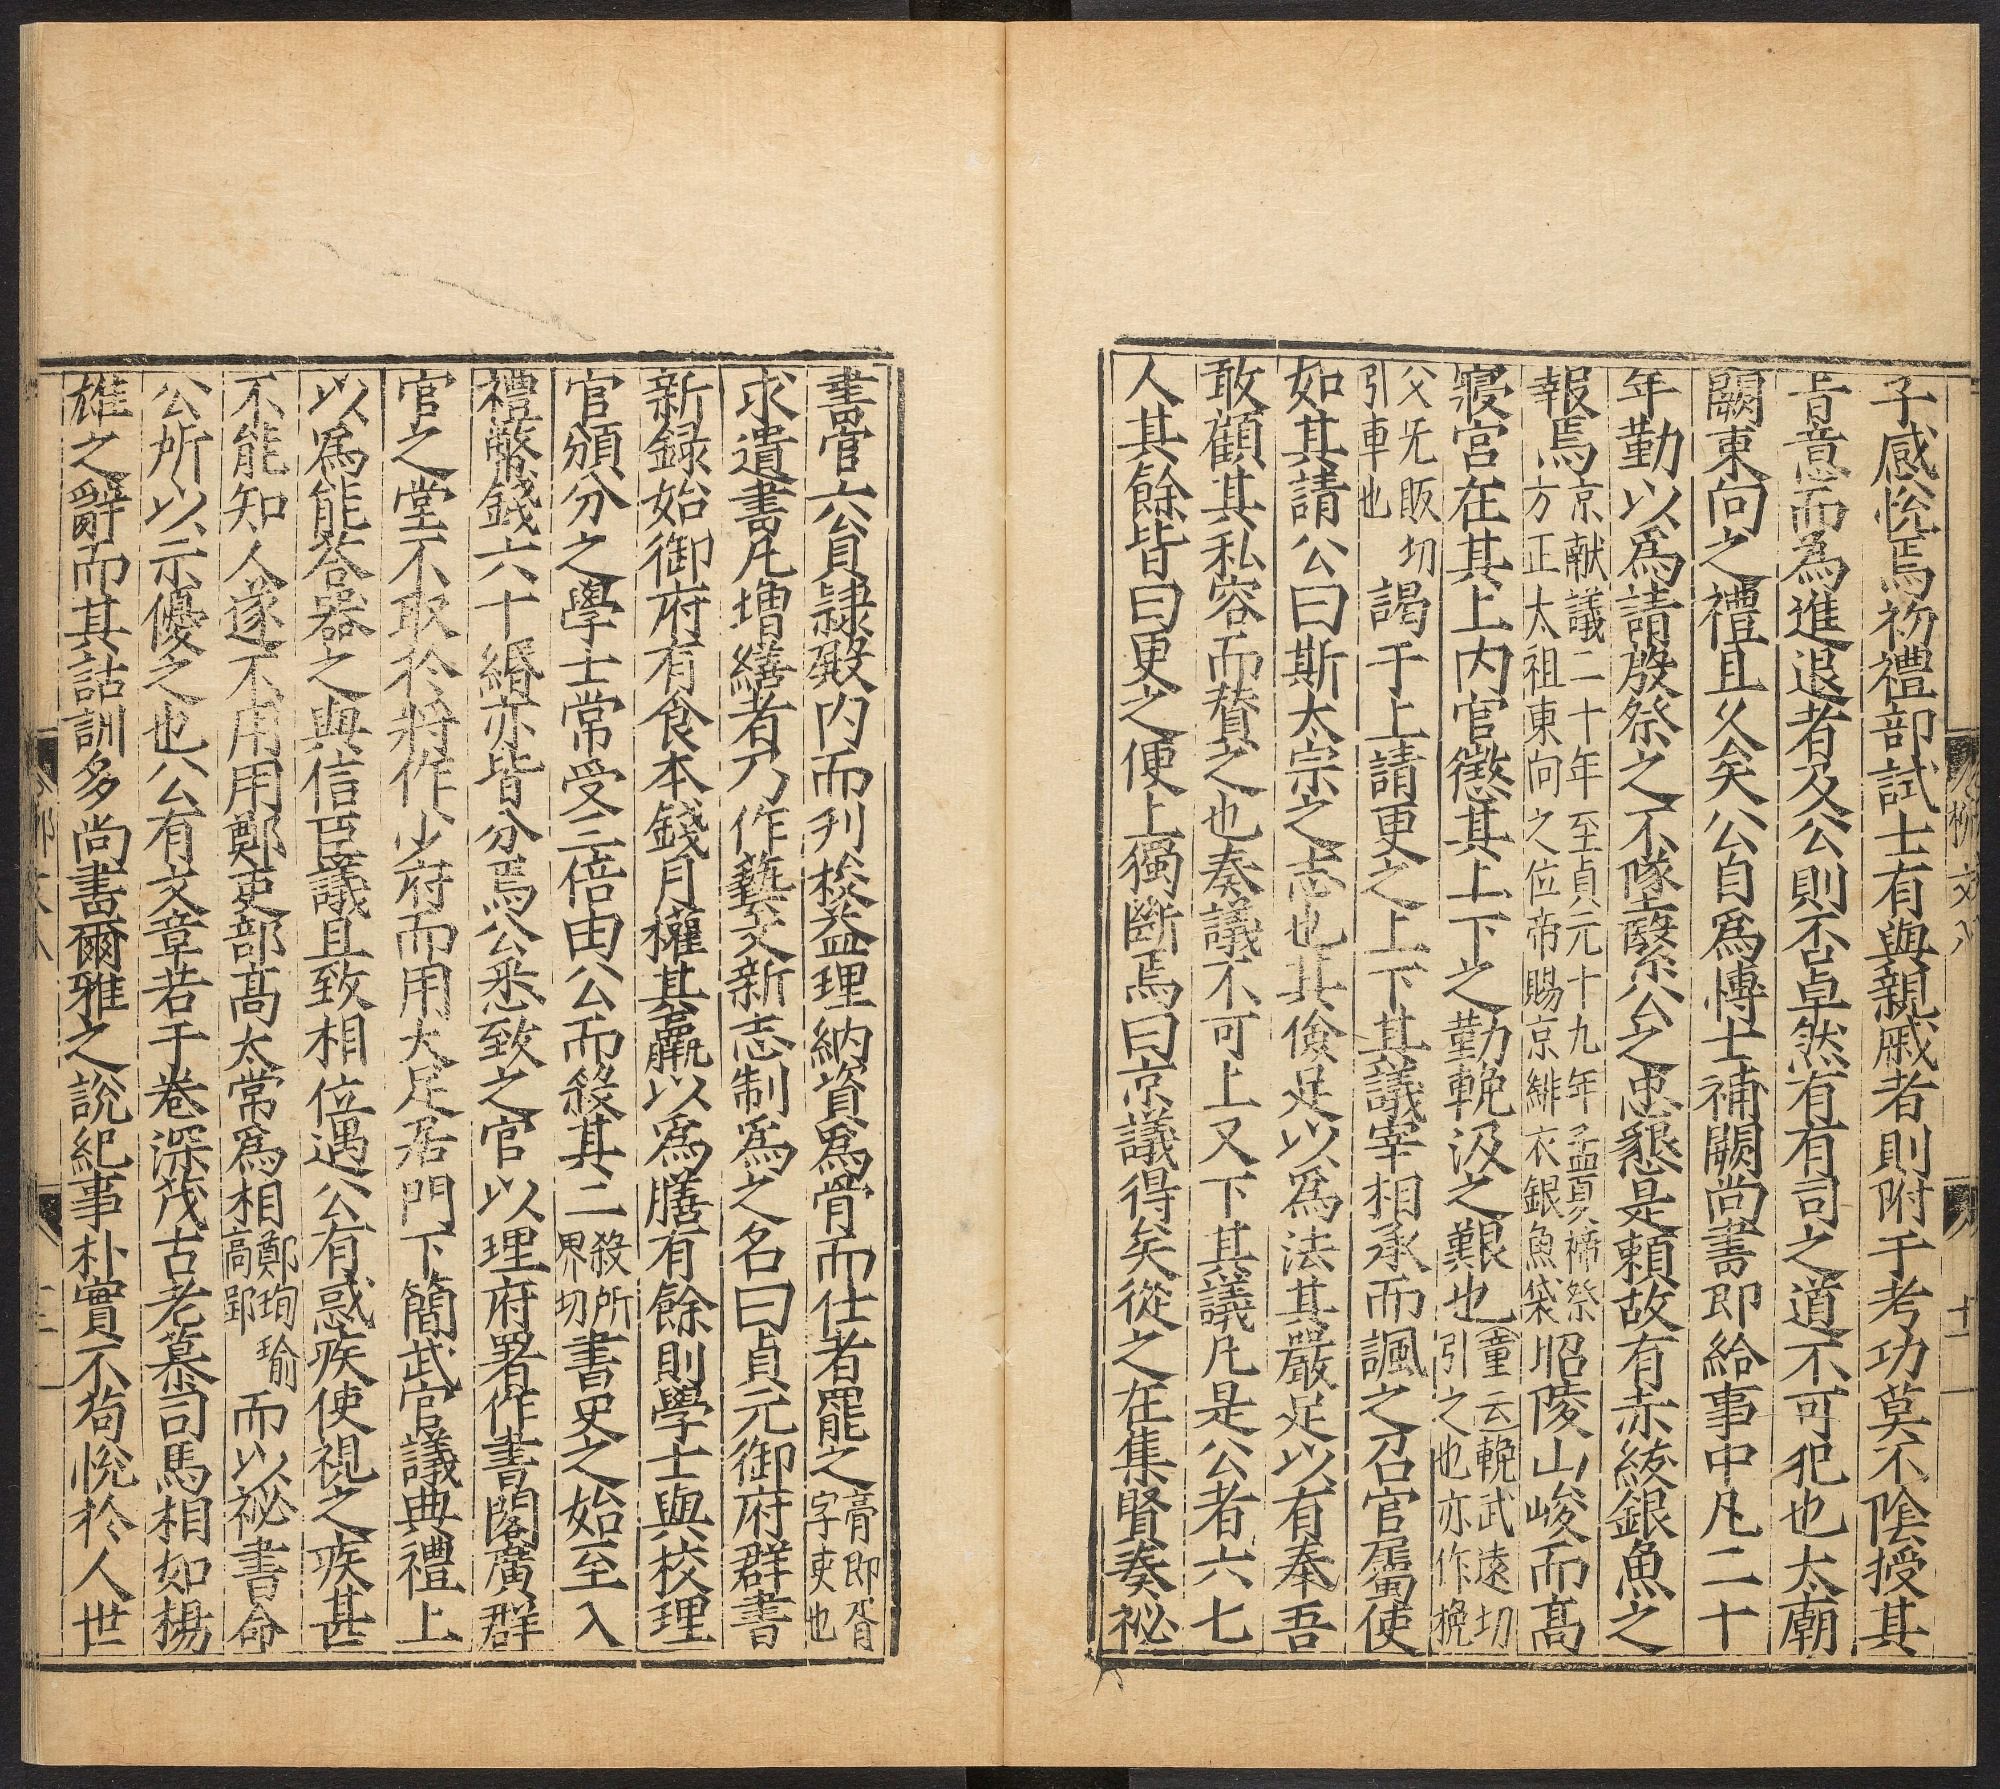 子感悅焉初禮部試士有與親戚者則附于考功莫不陰授其
旨意而為進退者及公則否卓然有有司之道不可犯也太廟
闕東向之禮且久矣公自爲博士補闕尚書郎給事中凡二十
年勤以爲請殷祭之不墜繄公之忠懇是賴故有赤紱銀魚之
報焉京献議二十年至貞元十九年孟夏禘祭方正太祖東向之位帝賜京緋衣銀魚袋昭陵山峻而髙
寢宮在其上内官懲其上下之勤輓汲之艱也童云輓武遠切引之也亦作挽
父旡販切引車也謁于上請更之上下其議宰相承而諷之召官屬使
如其請公曰斯太宗之志也其儉足以爲法其嚴足以有奉吾
敢顧其私容而賛之也奏議不可上又下其議凡是公者六七
人其餘皆曰更之便上獨斷焉曰京議得矣從之在集賢奏祕
書官六貟隷殿内而刋校益理納資爲胥而仕者罷之膏即胥字吏也
求遺書凡増繕者乃作藝文新志制爲之名曰貞元御府群書
新録始御府有食本錢月權其羸以爲膳有餘則學士與校理
官頒分之學士常受三倍由公而殺其二殺所界切書史之始至入
禮幣錢六十緡亦皆分焉公悉致之官以理府署作書閣廣群
官之堂不取於將作少府而用大足居門下簡武官議典禮上
以爲能荅器之與信臣議且致相位遇公有惑疾使視之疾甚
不能知人遂不用用鄭吏部髙太常爲相鄭珣瑜高郢而以祕書命
公所以示優之也公有文章若干卷深茂古老慕司馬相如楊
雄之辭而其詁訓多尚書爾雅之說紀事朴實不茍悅於人世